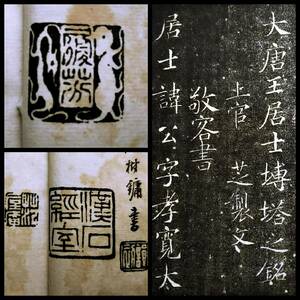 大唐王居士塼塔之銘
上官 芝製文
敬客書
居士諱公字孝寬太
樹鏞書
漢石
經室